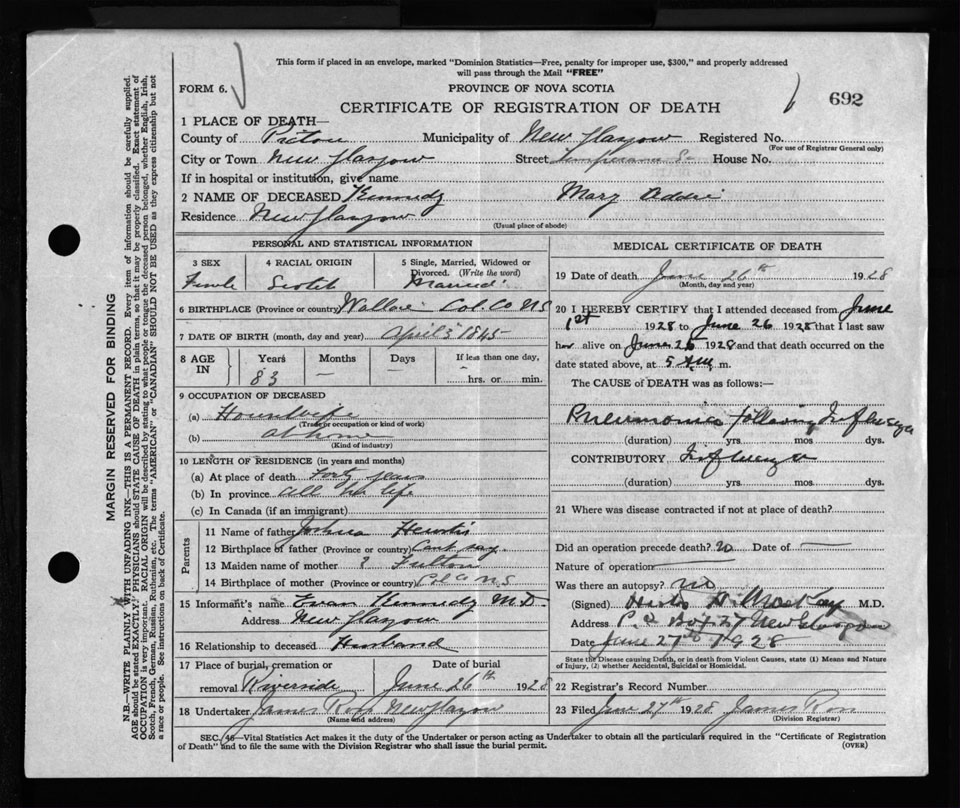 This form if placed in an envelope, marked "Dominion Statistics—Free, penalty for improper use, $300," and properly addressed
will pass through the Mail "FREE"
FORM 6. PROVINCE OF NOVA SCOTIA
CERTIFICATE OF REGISTRATION OF DEATH 692
1 PLACE OF DEATH—
County of Pictou Municipality of New Glasgow Registered No.
(For use of Registrar General only)
City or Town New Glasgow Street Temperance St House No.
If in hospital or institution, give name
2 NAME OF DECEASED Kennedy Mary Addie
Residence New Glasgow
(Usual place of abode)
PERSONAL AND STATISTICAL INFORMATION
3 SEX 4 RACIAL ORIGIN 5 Single, Married, Widowed or
Divorced. (Write the word)
Female Scotch Married
6 BIRTHPLACE (Province or country) Wallace Col. Co NS
7 DATE OF BIRTH (month, day and year) April 5 1845
8 AGE IN Years Months Days If less than one day,
83 — — — hrs. or min.
9 OCCUPATION OF DECEASED
(a) Housewife
(Trade or occupation or kind of work)
(b) at home
(Kind of industry)
10 LENGTH OF RESIDENCE (in years and months)
(a) At place of death Forty years
(b) In province All her life
(c) In Canada (if an immigrant)
Parents
11 Name of father Joshua
12 Birthplace of father (Province or country) Cant say
13 Maiden name of mother ? Fulton
14 Birthplace of mother (Province or country) Col Co NS
15 Informant's name Evan Kennedy M.D.
Address New Glasgow
16 Relationship to deceased Husband
17 Place of burial, cremation or Date of burial
removal Riverside June 26th 1928
18 Undertaker James Ross New Glasgow
(Name and address)
MEDICAL CERTIFICATE OF DEATH
19 Date of death June 26th 1928
(Month, day and year)
20 I HEREBY CERTIFY that I attended deceased from June
1st 1928 to June 26 1928 that I last saw
her alive on June 25 1928 and that death occurred on the
date stated above, at 5 AM. m.
The CAUSE of DEATH was as follows:—
Pneumonia following Influenza
(duration) yrs. mos. dys.
CONTRIBUTORY Influenza
(duration) yrs. mos. dys.
21 Where was disease contracted if not at place of death?
Did an operation precede death? no Date of —
Nature of operation —
Was there an autopsy? no
(Signed) H. MacKay M.D.
Address P.O Box 27 New Glasgow
Date June 27th 1928
State the Disease causing Death, or in death from Violent Causes, state (1) Means and Nature
of Injury, (2) whether Accidental, Suicidal or Homicidal.
22 Registrar's Record Number
23 Filed June 27th 1928 James Ross
(Division Registrar)
SEC. 46—Vital Statistics Act makes it the duty of the Undertaker or person acting as Undertaker to obtain all the particulars required in the "Certificate of Registration
of Death" and to file the same with the Division Registrar who shall issue the burial permit. (OVER)
MARGIN RESERVED FOR BINDING
N.B.—WRITE PLAINLY WITH UNFADING INK—THIS IS A PERMANENT RECORD. Every item of information should be carefully supplied.
AGE should be stated EXACTLY. PHYSICIANS should STATE CAUSE OF DEATH in plain terms, so that it may be properly classified. Exact statement of
OCCUPATION is very important. RACIAL ORIGIN will be described by stating to what people or tongue the deceased person belonged, whether English, Irish,
Scotch, French, German, Russian, Ruthenian, etc. The terms "AMERICAN" or "CANADIAN" SHOULD NOT BE USED as they express citizenship but not
a race or people. See instructions on back of Certificate.